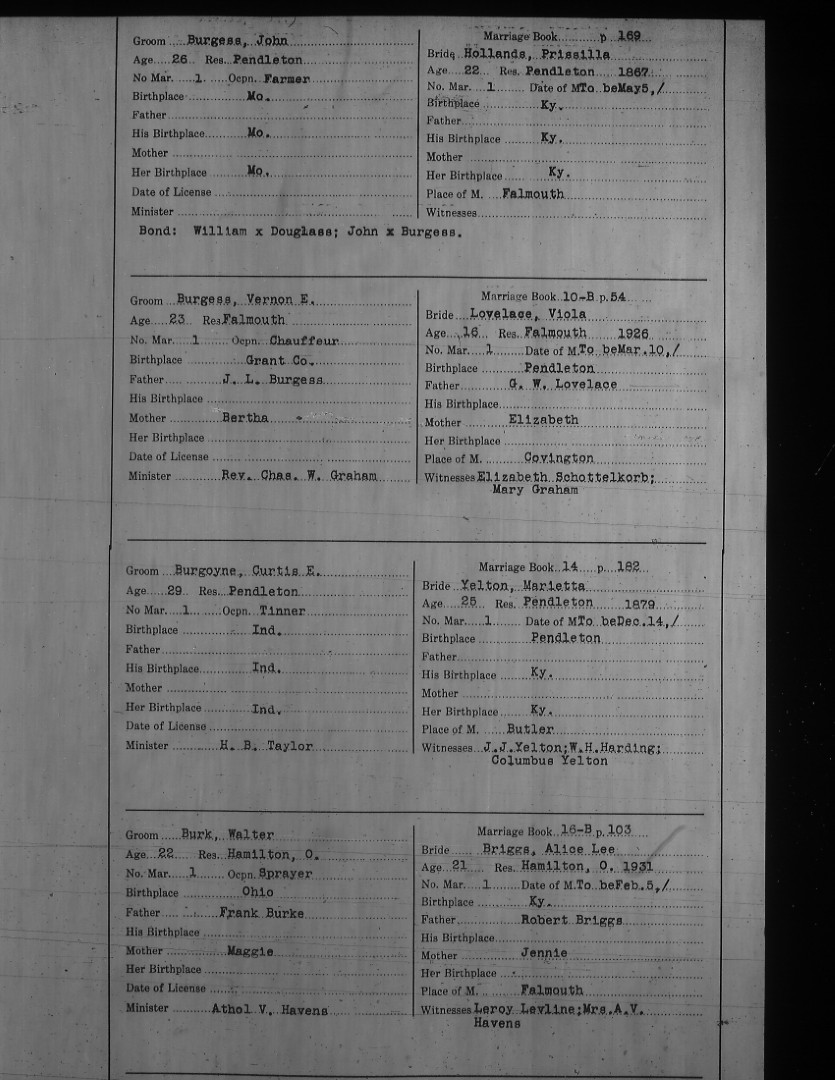 Groom Burgess, John
Age 26 Res. Pendleton
No Mar. 1. Ocpn. Farmer
Birthplace Mo.
Father
His Birthplace Mo.
Mother
Her Birthplace Mo.
Date of License
Minister
Marriage Book p 169
Bride Hollands, Prissilla
Age 22 Res. Pendleton 1867
No. Mar. 1 Date of M To beMay5,/
Birthplace Ky.
Father
His Birthplace Ky.
Mother
Her Birthplace Ky.
Place of M. Falmouth
Witnesses
Bond: William x Douglass; John x Burgess.
Groom Burgess, Vernon E.
Age 23 Res Falmouth
No. Mar. 1 Ocpn. Chauffeur
Birthplace Grant Co.
Father J. L. Burgess
His Birthplace
Mother Bertha
Her Birthplace
Date of License
Minister Rev. Chas. W. Graham
Marriage Book 10-B p. 54
Bride Lovelace, Viola
Age 16 Res. Falmouth 1926
No. Mar. 1 Date of M. To beMar.10,/
Birthplace Pendleton
Father G. W. Lovelace
His Birthplace
Mother Elizabeth
Her Birthplace
Place of M. Covington
Witnesses Elizabeth Schottelkorb;
Mary Graham
Groom Burgoyne, Curtis E.
Age 29 Res. Pendleton
No Mar. 1 Ocpn. Tinner
Birthplace Ind.
Father
His Birthplace Ind.
Mother
Her Birthplace Ind.
Date of License
Minister H. B. Taylor
Marriage Book 14 p. 182
Bride Yelton, Marietta
Age 25 Res. Pendleton 1879
No. Mar. 1 Date of M To beDec.14,/
Birthplace Pendleton
Father
His Birthplace Ky.
Mother
Her Birthplace Ky.
Place of M. Butler
Witnesses J.J.Yelton;W.H.Harding;
Columbus Yelton
Groom Burk, Walter
Age 22 Res. Hamilton, O.
No. Mar. 1 Ocpn. Sprayer
Birthplace Ohio
Father Frank Burke
His Birthplace
Mother Maggie
Her Birthplace
Date of License
Minister Athol V. Havens
Marriage Book 16-B p. 103
Bride Briggs, Alice Lee
Age 21 Res. Hamilton, O. 1931
No. Mar. 1 Date of M. To beFeb.5,/
Birthplace Ky.
Father Robert Briggs
His Birthplace
Mother Jennie
Her Birthplace
Place of M. Falmouth
Witnesses Leroy Levline;Mrs.A.V.
Havens